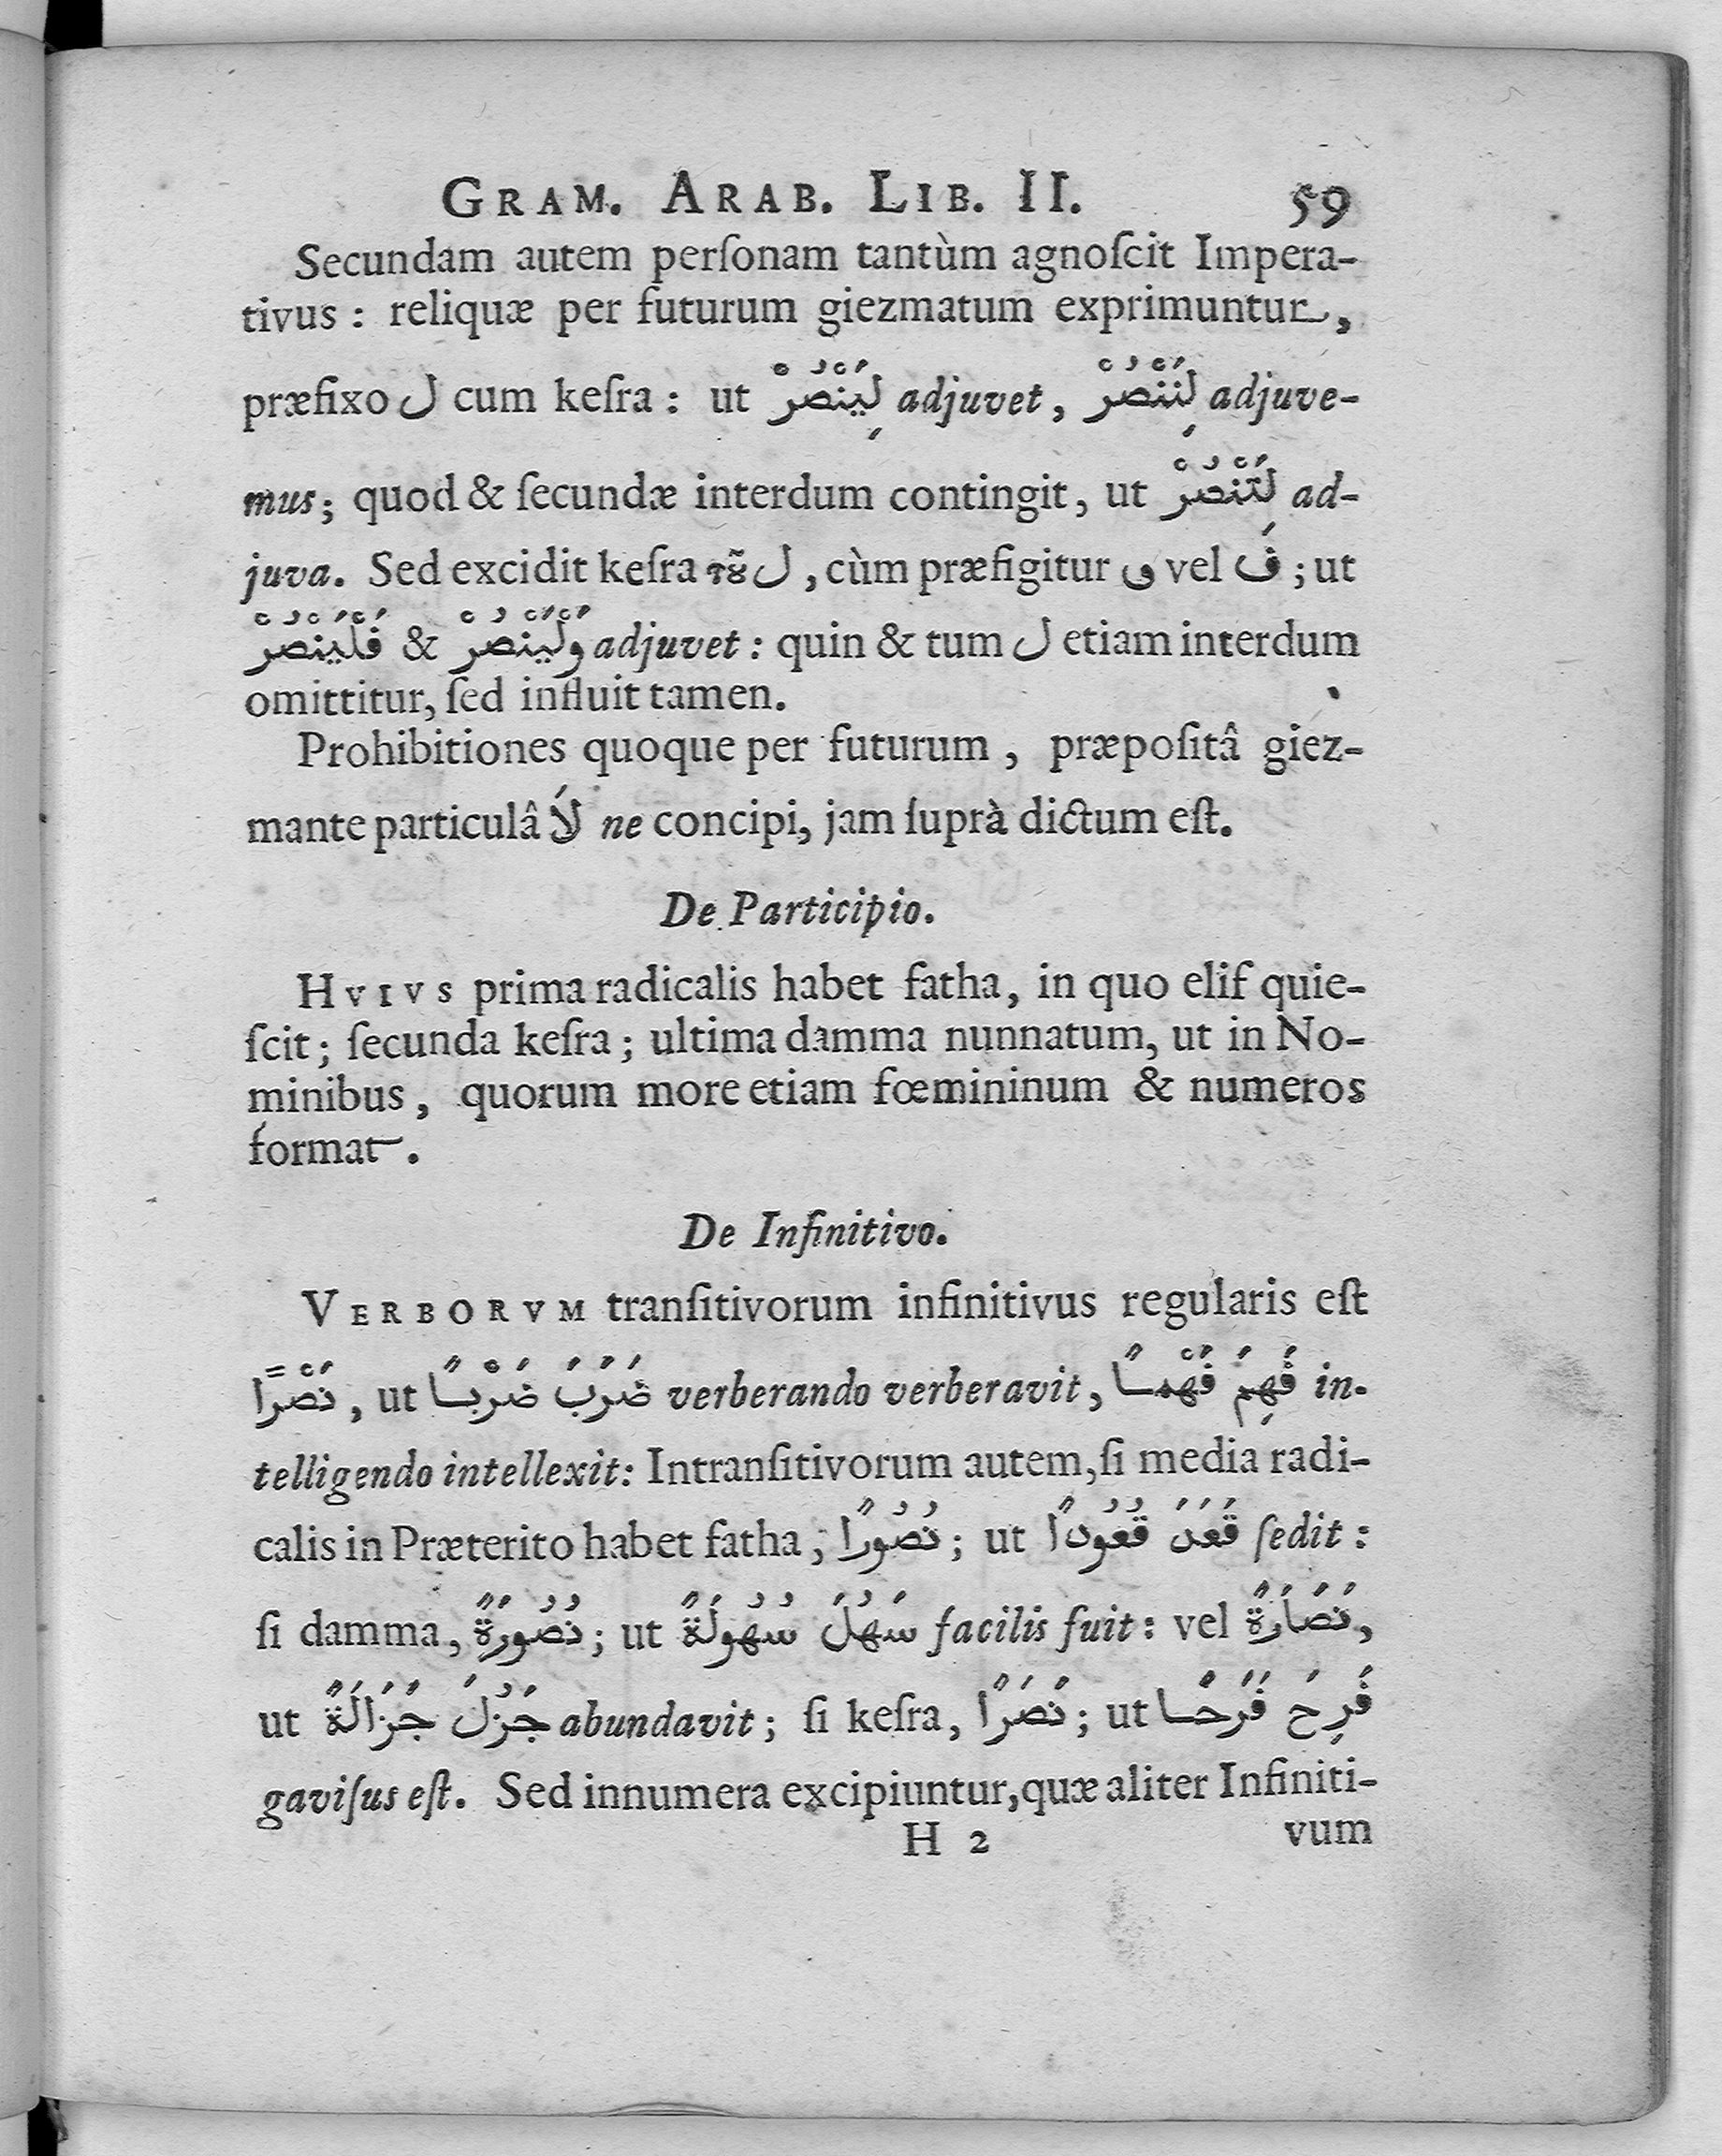 GRAM. ARAB. LIB. II. 59
Secundam autem perſonam tantùm agnoſcit Impera-
tivus: reliquæ per futurum giezmatum exprimuntur,
præfixo ل cum keſra: ut لِيَنْصُرْ adjuvet, لِنَنْصُرْ adjuve-
mus; quod & ſecundæ interdum contingit, ut لِتَنْصُرْ ad-
juva. Sed excidit keſra τ͂ȣ ل, cùm præfigitur و vel فَ; ut
فَلْيَنْصُرْ & وَلْيَنْصُرْ adjuvet: quin & tum ل etiam interdum
omittitur, ſed influit tamen.
Prohibitiones quoque per futurum, præpoſitâ giez-
mante particulâ لَا ne concipi, jam ſuprà dictum eſt.
De Participio.
HVIVS prima radicalis habet fatha, in quo elif quie-
ſcit; ſecunda keſra; ultima damma nunnatum, ut in No-
minibus, quorum more etiam fœmininum & numeros
format.
De Infinitivo.
VERBORVM tranſitivorum infinitivus regularis eſt
نَصْرًا, ut ضَرَبَ ضَرْبًا verberando verberavit, فَهِمَ فَهْمًا in-
telligendo intellexit: Intranſitivorum autem, ſi media radi-
calis in Præterito habet fatha, نُصُورًا; ut قَعَدَ قُعُودًا ſedit:
ſi damma, نُصُورَةً; ut سَهُلَ سُهُولَةً facilis fuit: vel نَصَارَةً,
ut جَزُلَ جَزَالَةً abundavit; ſi keſra, نَصَرًا; ut فَرِحَ فَرَحًا
gaviſus eſt. Sed innumera excipiuntur, quæ aliter Infiniti-
H 2 vum